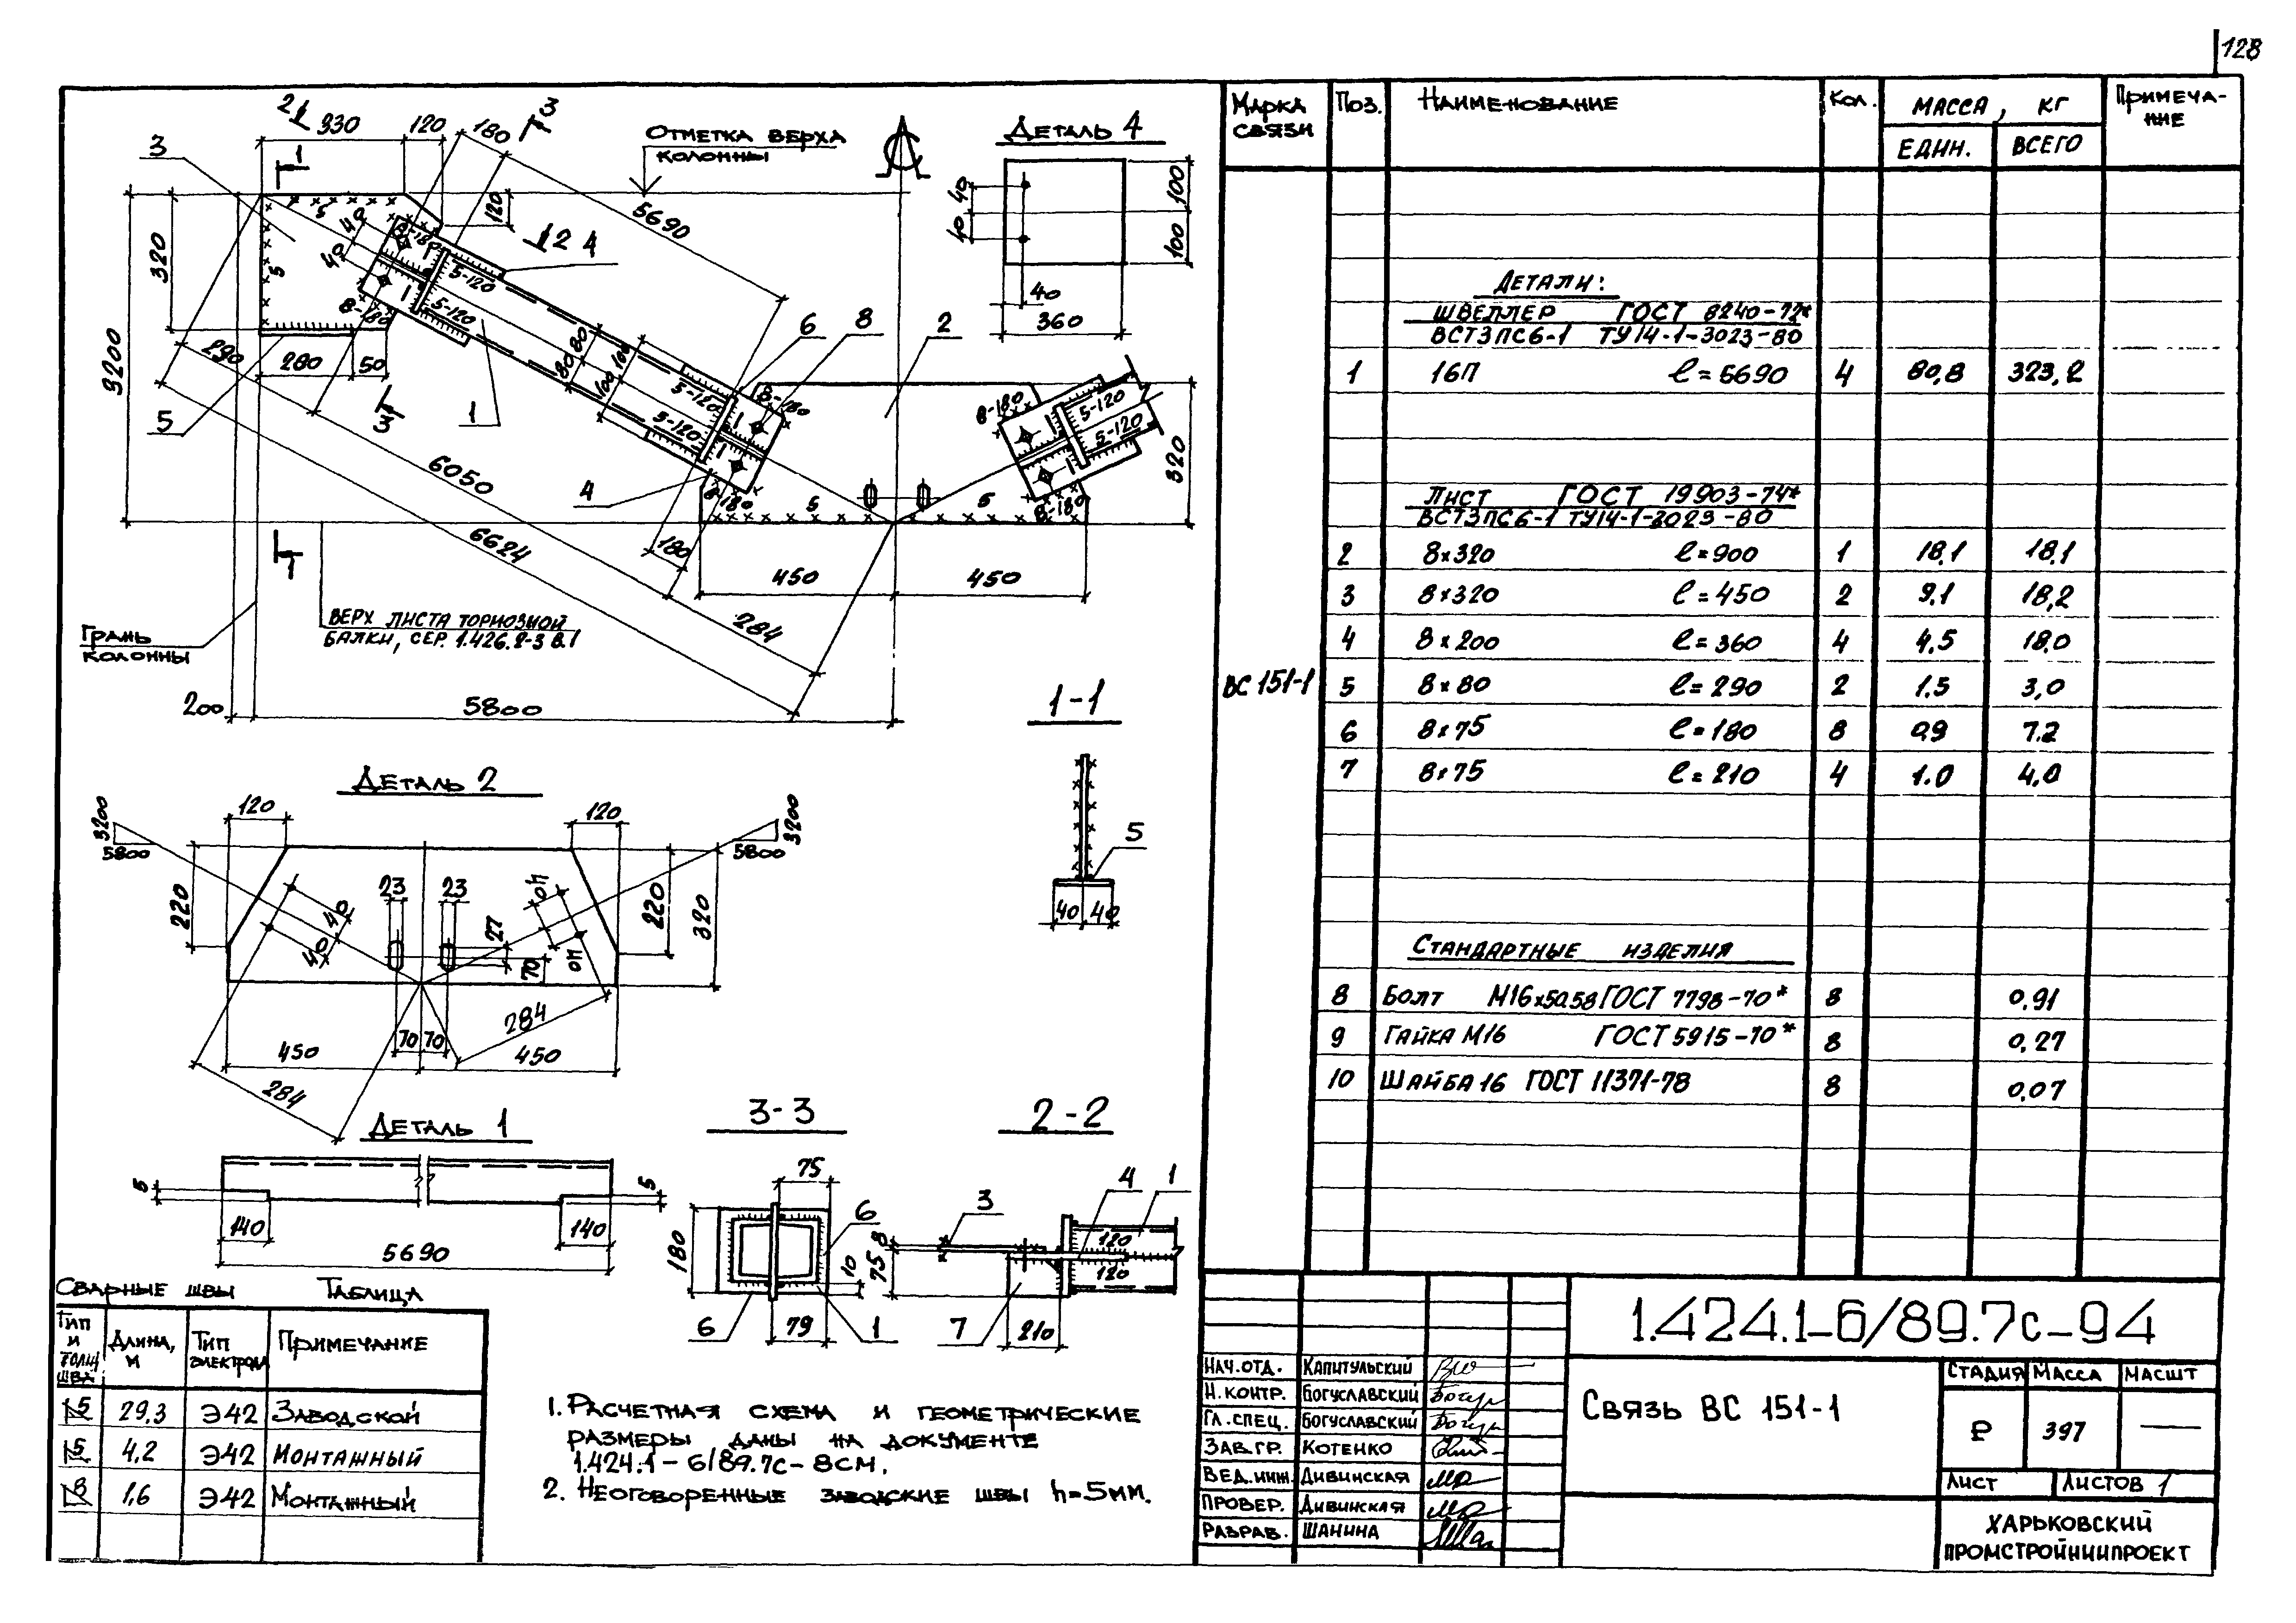 128
2
330
120
180
3
1
3
ОТМЕТКА ВЕРХА
КОЛОННЫ
ДЕТАЛЬ 4
5690
120
2
4
320
3200
5
5
40
40
8-180
8-180
5-120
5-120
290
280
50
3
5
1
80 80
100 100
6
8
2
5-120
5-120
8-180
8-180
4
5
5
8-180
8-180
5-120
5-120
320
40
40
100
100
40
360
6050
6624
180
450
450
284
1
ВЕРХ ЛИСТА ТОРМОЗНОЙ
БАЛКИ, СЕР. 1.426.2-3 В.1
ГРАНЬ
КОЛОННЫ
200
5800
1-1
5
40 40
ДЕТАЛЬ 2
3200
5800
120
120
3200
5800
220
23
23
40
40
40
40
27
70
220
320
284
70 70
450
450
284
ДЕТАЛЬ 1
5
5
140
140
5690
3-3
75
180
6
10
6
79
1
2-2
3
4
1
8
75
120
120
7
210
СВАРНЫЕ ШВЫ ТАБЛИЦА
ТИП И ТОЛЩ ШВА
ДЛИНА, М
ТИП ЭЛЕКТРОДА
ПРИМЕЧАНИЕ
5 29,3 Э42 ЗАВОДСКОЙ
5 4,2 Э42 МОНТАЖНЫЙ
8 1,6 Э42 МОНТАЖНЫЙ
1. РАСЧЕТНАЯ СХЕМА И ГЕОМЕТРИЧЕСКИЕ
РАЗМЕРЫ ДАНЫ НА ДОКУМЕНТЕ
1.424.1-6/89.7с-8СМ.
2. НЕОГОВОРЕННЫЕ ЗАВОДСКИЕ ШВЫ h=5ММ.
МАРКА СВЯЗИ
ПОЗ.
НАИМЕНОВАНИЕ
КОЛ.
МАССА, КГ
ЕДИН.
ВСЕГО
ПРИМЕЧА-
НИЕ
ДЕТАЛИ:
ШВЕЛЛЕР ГОСТ 8240-72*
ВСТ3ПС6-1 ТУ14-1-3023-80
1 16П ℓ=5690 4 80,8 323,2
ЛИСТ ГОСТ 19903-74*
ВСТ3ПС6-1 ТУ14-1-3023-80
2 8×320 ℓ=900 1 18,1 18,1
3 8×320 ℓ=450 2 9,1 18,2
4 8×200 ℓ=360 4 4,5 18,0
ВС 151-1
5 8×80 ℓ=290 2 1.5 3,0
6 8×75 ℓ=180 8 0,9 7.2
7 8×75 ℓ=210 4 1.0 4,0
СТАНДАРТНЫЕ ИЗДЕЛИЯ
8 БОЛТ М16×50.58 ГОСТ 7798-70* 8 0,91
9 ГАЙКА М16 ГОСТ 5915-70* 8 0,27
10 ШАЙБА 16 ГОСТ 11371-78 8 0,07
1.424.1-6/89.7с-94
НАЧ.ОТД. КАПИТУЛЬСКИЙ
Н.КОНТР. БОГУСЛАВСКИЙ
ГЛ.СПЕЦ. БОГУСЛАВСКИЙ
ЗАВ.ГР. КОТЕНКО
ВЕД.ИНЖ. ДИВИНСКАЯ
ПРОВЕР. ДИВИНСКАЯ
РАЗРАБ. ШАНИНА
СВЯЗЬ ВС 151-1
СТАДИЯ МАССА МАСШТ
Р 397 —
ЛИСТ ЛИСТОВ 1
ХАРЬКОВСКИЙ
ПРОМСТРОЙНИИПРОЕКТ